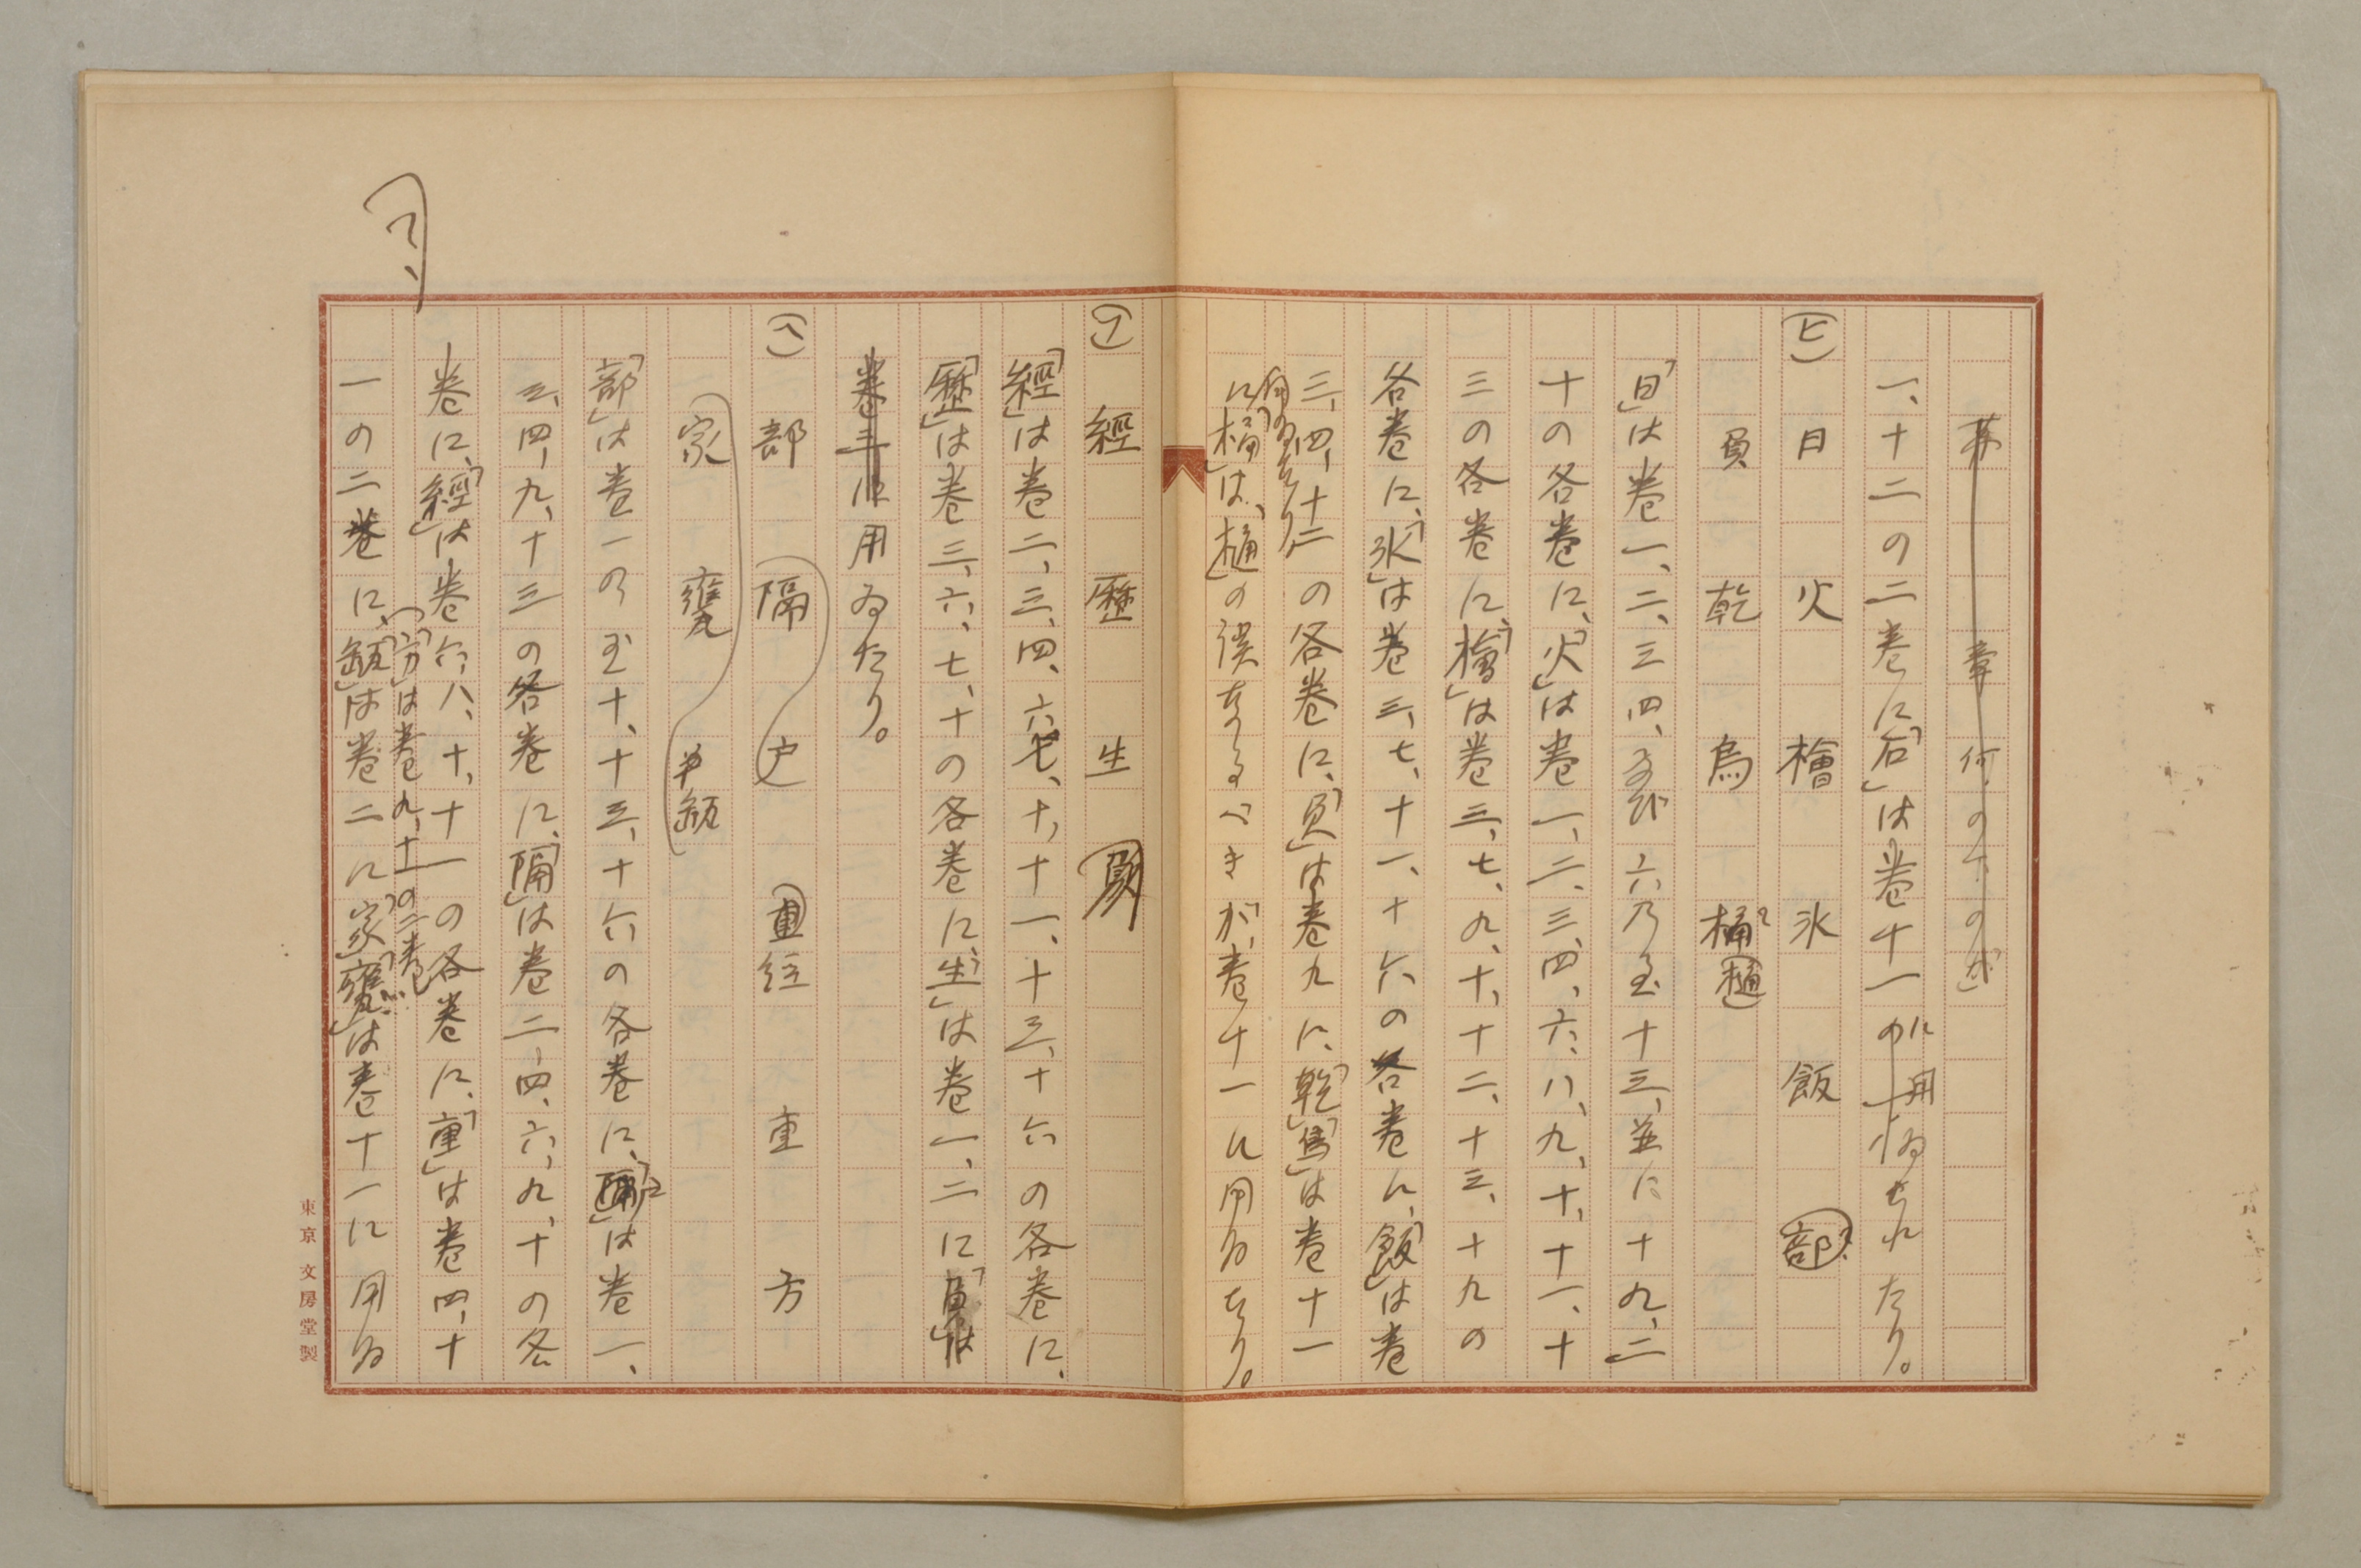 一、十二の二巻に、「石」は巻十一に用ゐられたり。
(ヒ) 日 火 檜 氷 飯
負 乾 烏 桶 樋
「日」は巻一、二、三、四、及び六乃至十三、並に十九、二
十の各巻に、「火」は巻一、二、三、四、六、八、九、十、十一、十
三の各巻に、「檜」は巻三、七、九、十、十二、十三、十九の
各巻に、「氷」は巻三、七、十一、十六の各巻に、「飯」は巻
三、四、十二の各巻に、「負」は巻九に、「乾」「烏」は巻十一
に用ゐたり。「桶」は、「樋」の誤なるべきが、巻十一に用ゐたり。
(フ) 經 歴 生
「經」は巻二、三、四、六、七、十、十一、十三、十六の各巻に、
「歴」は巻三、六、七、十の各巻に、「生」は巻一、二に
用ゐたり。
(ヘ) 部 隔 戸 重 經 重 方
家 甕 缻
「部」は巻一乃至十、十三、十六の各巻に、「隔」は巻一、
三、四、九、十三の各巻に、「隔」は巻二、四、六、九、十の各
巻に、「經」は巻六、八、十、十一の各巻に、「重」は巻四、十
「方」は巻九、十一の二巻
一の二巻に、「缻」は巻二に「家」「甕」は巻十一に用ゐ
東京文房堂製